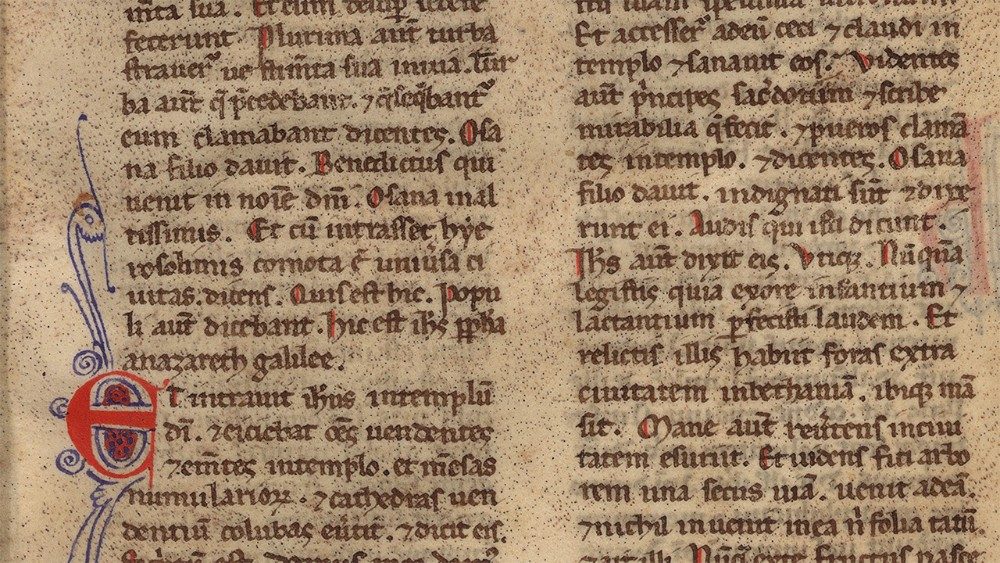 feceruut. Plurima aut̄ turba
strauer̄ uestim̄ta sua ī uia. Tur
ba aut̄ q̄ p̄cedebant. ⁊ q̄ seq̄bant̄
eum clamabant dicentes. Osa
na filio dauit. Benedictus qui
uenit in noīe dn̄i. Osana in al
tissimis. Et cū intrasset hye
rosolimis comota ē uniūsa ci
uitas. dicens. Quis est hic. Popu
li aut̄ dicebant. Hic est ih̄s pph̄a
a nazareth galilee.
Et intrauit ih̄us in templū
dī. ⁊ eiciebat oēs uendentes
⁊ em̄tes in templo. et m̄esas
numulariorꝝ. ⁊ cathedras uen
dentiū colūbas eūtit. ⁊ dicit eis.
Et accesser̄ ad eū ceci ⁊ claudi in
templo ⁊ sanauit eos. Videntes
aut̄ p̄ncipes sac̄dotum ⁊ scribe
mirabilia q̄ fecit. ⁊ pueros clamā
tes in templo. ⁊ dicentes. Osana
filio dauit. indignati sūt ⁊ dixe
runt ei. Audis qui isti dicunt.
Ih̄s aut̄ dixit eis. Vtiqꝫ. Nūquā
legistis quia ex ore infantium ⁊
lactantium ꝑfecisti laudem. Et
relictis illis habiit foras extra
ciuitatem in bethaniā. ibiqꝫ mā
sit. Mane aut̄ reūtens in ciui
tatem esuriit. Et uidens fici arbo
rem una secus uiā. uenit ad eā.
⁊ nichil inuenit in ea n̄ folia tātū.